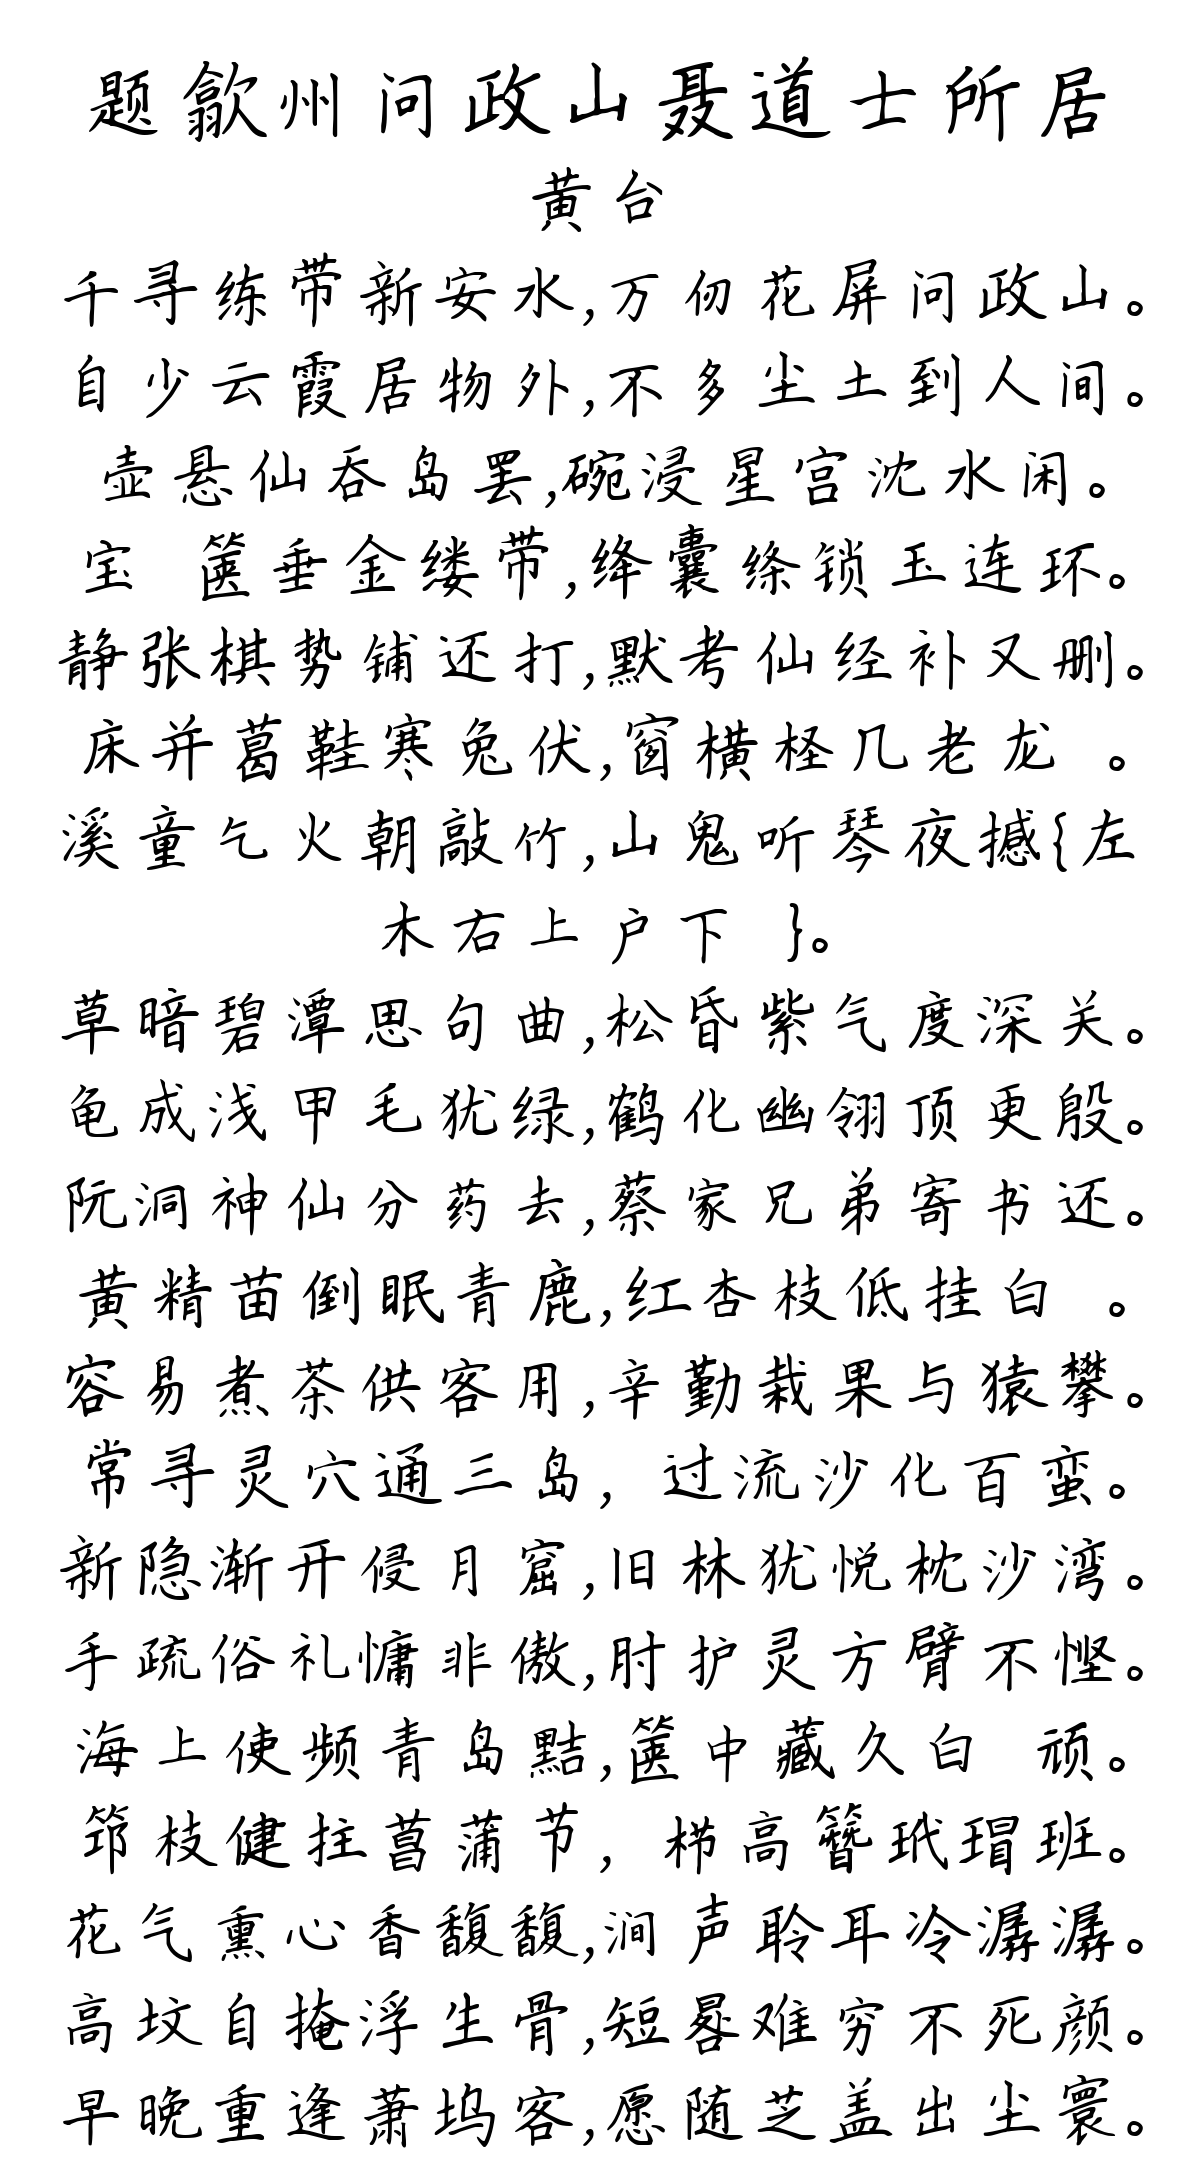 题歙州问政山聂道士所居
黄台
千寻练带新安水,万仞花屏问政山。
自少云霞居物外,不多尘土到人间。
壶悬仙吞岛罢,碗浸星宫沈水闲。
宝 箧垂金缕带,绛囊绦锁玉连环。
静张棋势铺还打,默考仙经补又删。
床并葛鞋寒兔伏,窗横柽几老龙 。
溪童乞火朝敲竹,山鬼听琴夜撼{左
木右上户下 }。
草暗碧潭思句曲,松昏紫气度深关。
龟成浅甲毛犹绿,鹤化幽翎顶更殷。
阮洞神仙分药去,蔡家兄弟寄书还。
黄精苗倒眠青鹿,红杏枝低挂白 。
容易煮茶供客用,辛勤栽果与猿攀。
常寻灵穴通三岛, 过流沙化百蛮。
新隐渐开侵月窟,旧林犹悦枕沙湾。
手疏俗礼慵非傲,肘护灵方臂不悭。
海上使频青岛黠,箧中藏久白 顽。
筇枝健拄菖蒲节, 栉高簪玳瑁班。
花气熏心香馥馥,涧声聆耳冷潺潺。
高坟自掩浮生骨,短晷难穷不死颜。
早晚重逢萧坞客,愿随芝盖出尘寰。